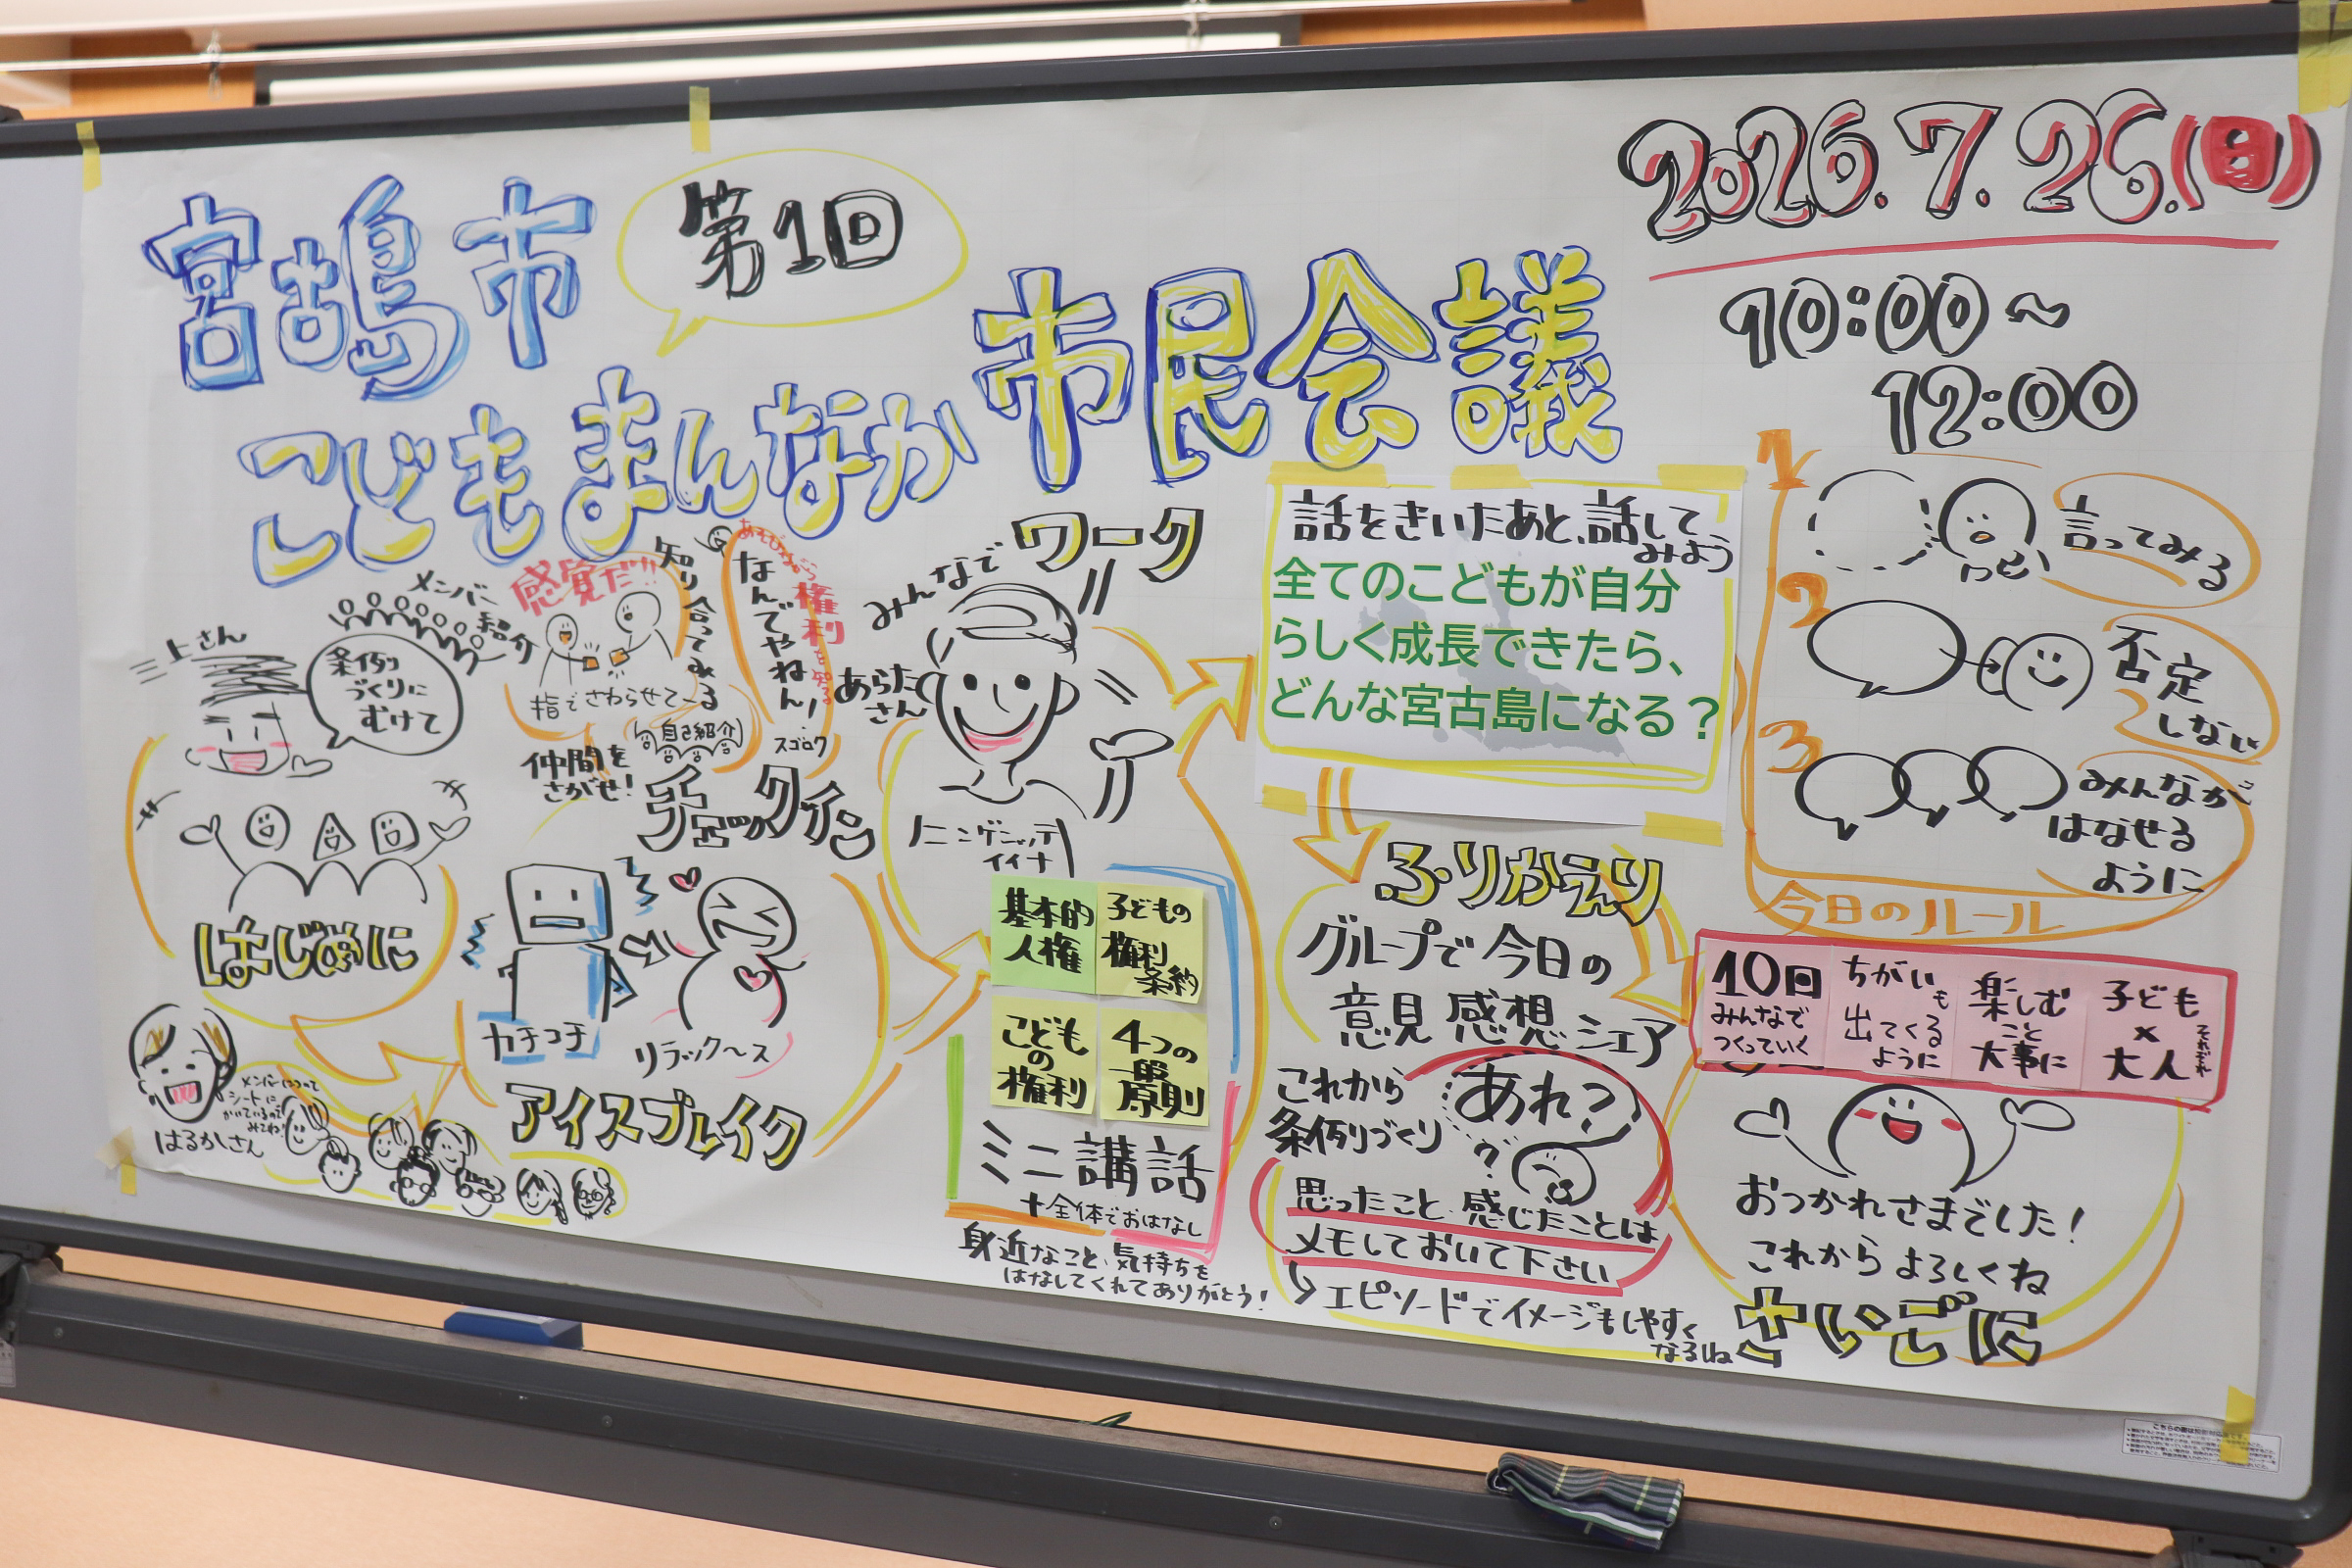 2026.7.26.(日)
10:00〜
12:00
宮古島市
第1回
こどもまんなか
市民会議
上さん
条例
づくりに
むけて
メンバー
紹介
はじめに
はるかさん
感覚だ!!
知り合ってみる
指でさわらせて〜
自己紹介
仲間を
さがせ!
あそびながら
権利を知る
なんでやねん!
スゴロク
チェックイン
カチコチ
リラック〜ス
アイスブレイク
みんなで
ワーク
あらた
さん
基本的
人権
子どもの
権利
条約
こども
の
権利
4つの
原則
ミニ講話
+全体でおはなし
身近なこと、気持ちを
はなしてくれてありがとう!
話をきいたあと、話して
みよう
全てのこどもが自分
らしく成長できたら、
どんな宮古島になる?
ふりかえり
グループで今日の
意見 感想 シェア
これから
条例づくり
あれ?
?
思ったこと、感じたことは
メモしておいて下さい
エピソードでイメージもしやすく
なるしね
1
言ってみる
2
否定
しない
3
みんなが
はなせる
ように
今日のルール
10回
みんなで
つくっていく
ちがい
も
出てくる
ように
楽しむ
こと
大事に
子ども
×
大人
それぞれ
おつかれさまでした!
これから よろしくね
さいごに